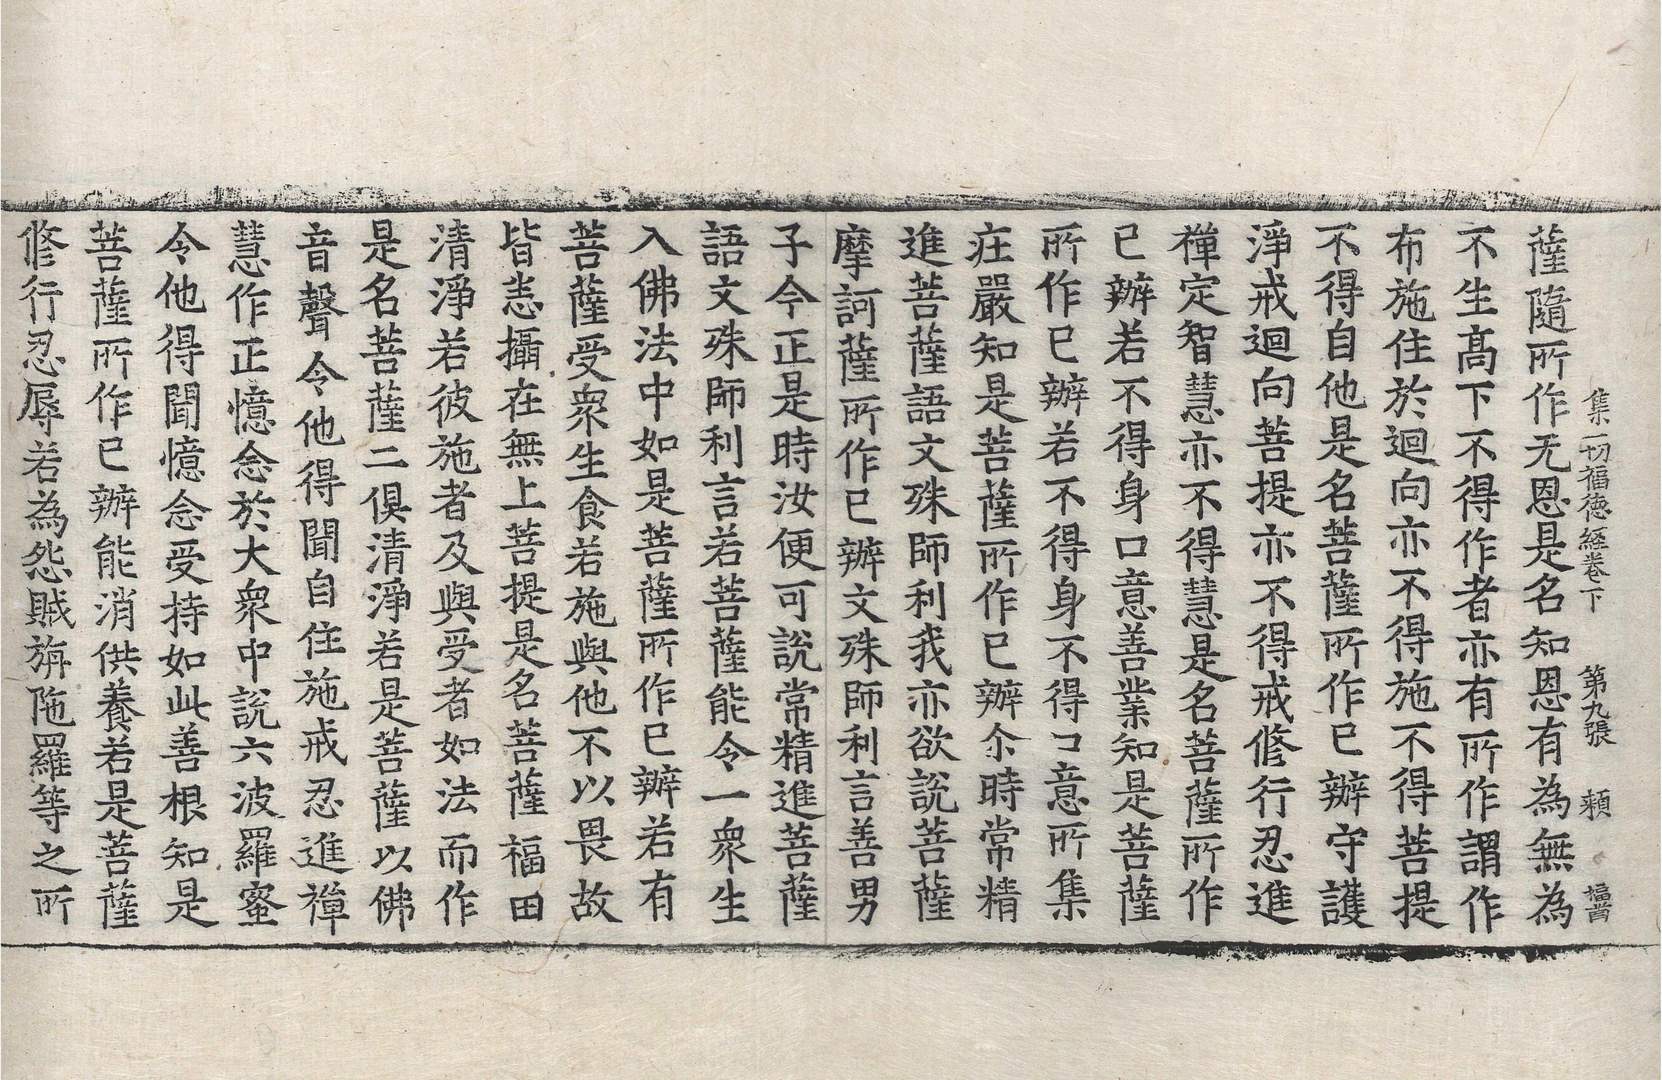 集一切福德經卷下　第九張　頼　福首
薩隨所作无恩是名知恩有為無為
不生髙下不得作者亦有所作謂作
布施住於迴向亦不得施不得菩提
不得自他是名菩薩所作已辦守護
淨戒迴向菩提亦不得戒修行忍進
禪定智慧亦不得慧是名菩薩所作
已辦若不得身口意善業知是菩薩
所作已辦若不得身不得口意所集
莊嚴知是菩薩所作已辦尒時常精
進菩薩語文殊師利我亦欲說菩薩
摩訶薩所作已辦文殊師利言善男
子今正是時汝便可說常精進菩薩
語文殊師利言若菩薩能令一衆生
入佛法中如是菩薩所作已辦若有
菩薩受衆生食若施與他不以畏故
皆悉攝在無上菩提是名菩薩福田
清淨若彼施者及與受者如法而作
是名菩薩二俱清淨若是菩薩以佛
音聲令他得聞自住施戒忍進禪
慧作正憶念於大衆中說六波羅蜜
令他得聞憶念受持如此善根知是
菩薩所作已辦能消供養若是菩薩
修行忍辱若為怨賊旃陁羅等之所